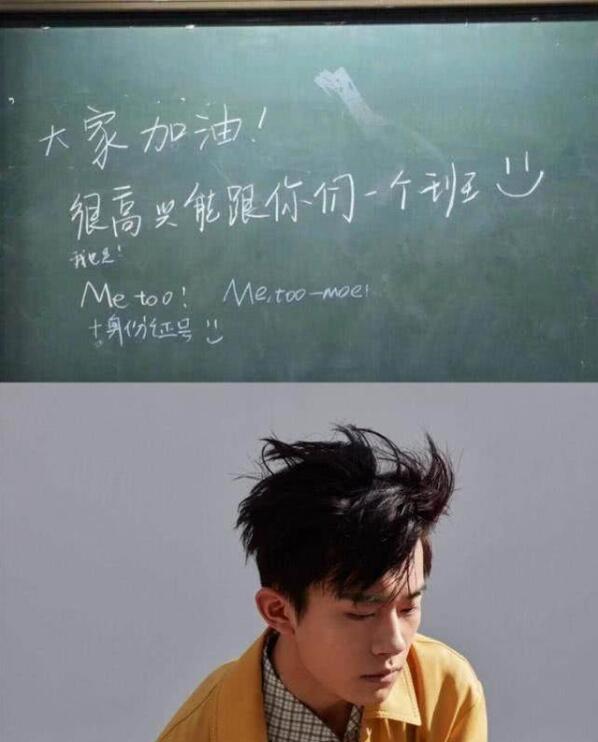 大家加油！
很高兴能跟你们一个班
我也是！
Me too! Me,too—moe!
+身份证号